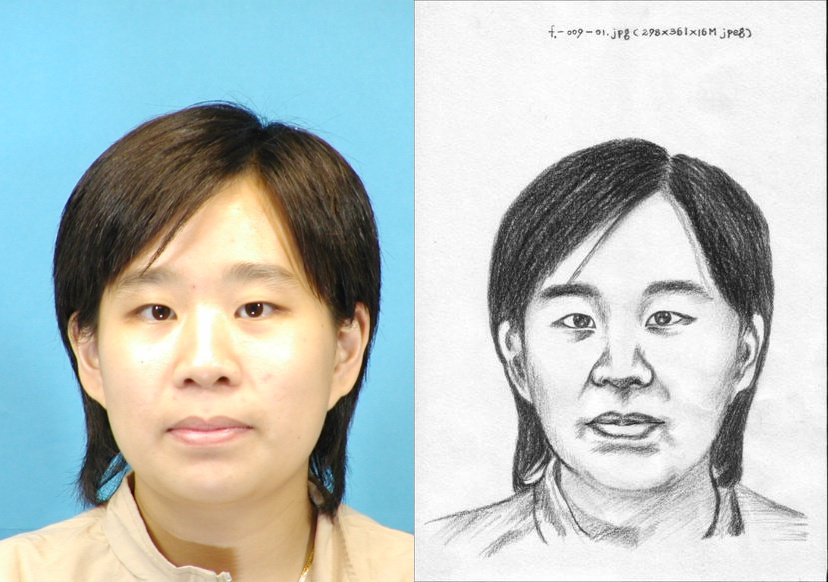 f-009-01.jpg(298x361x16M jpeg)